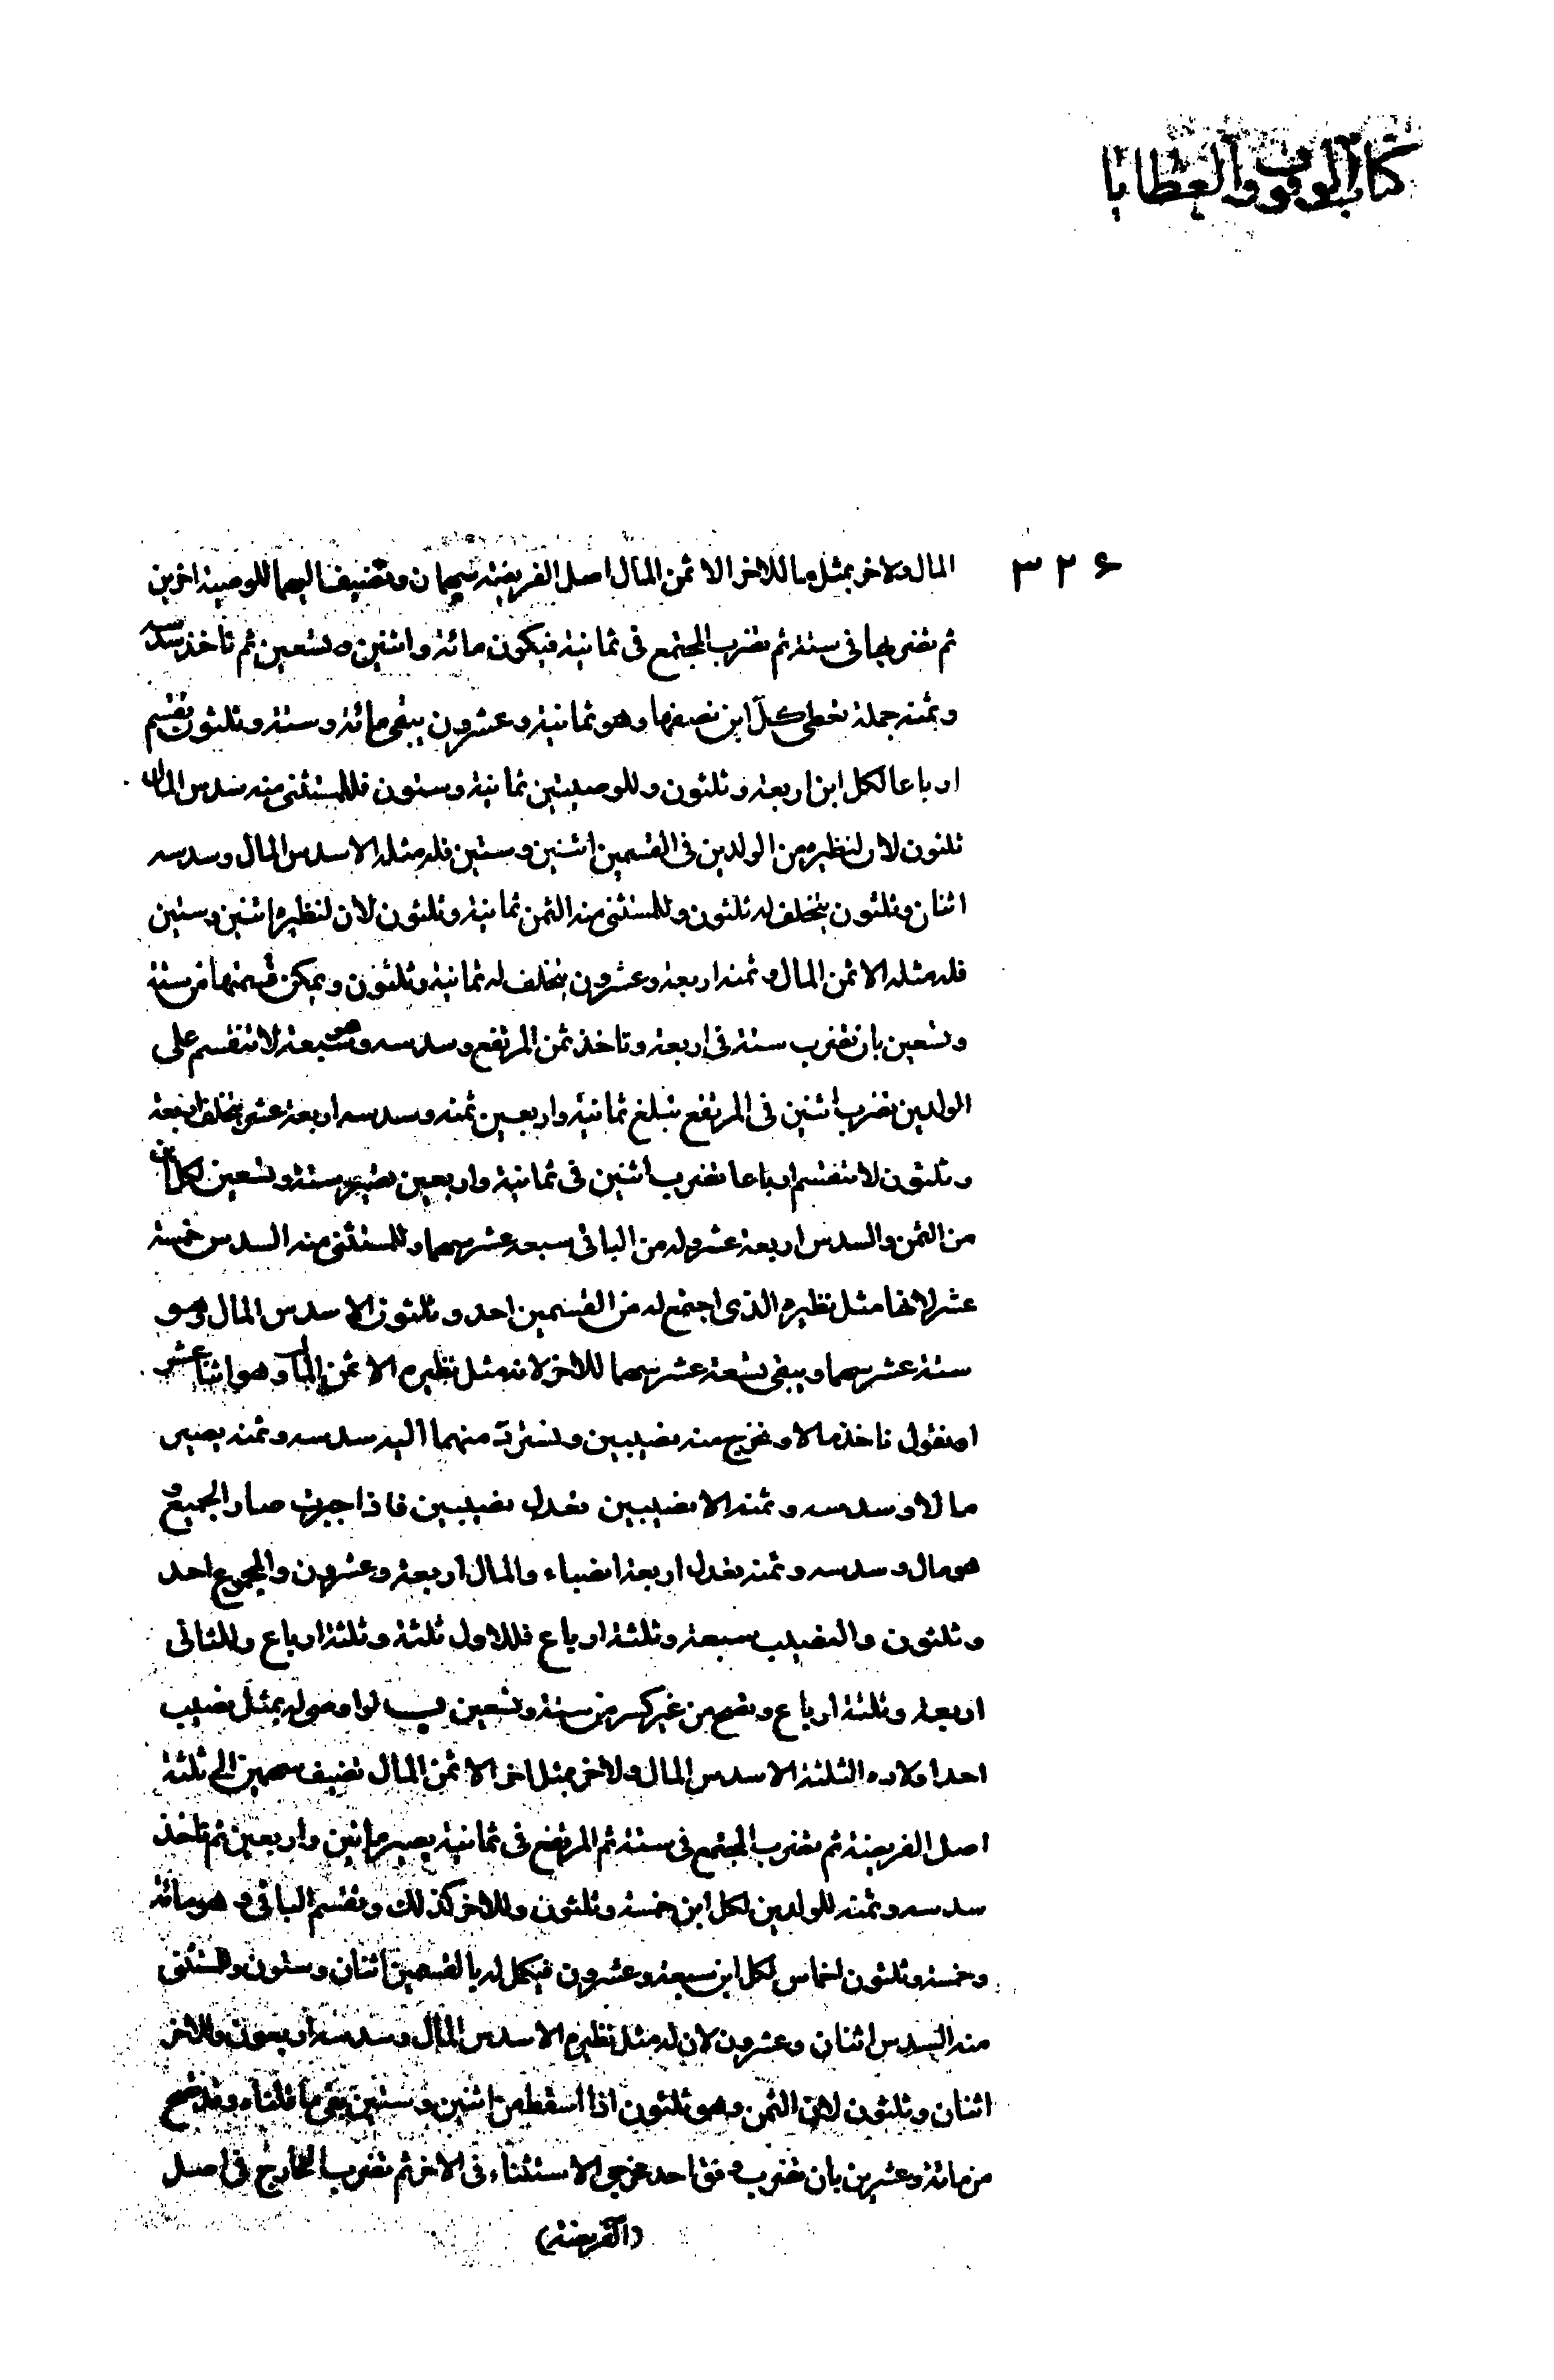 كتاب الوقوف والعطايا
٣٢۶
المال ولاخر بمثل ما للاخر الا ثمن المال اصل الفريضة سهمان وتضيف اليهما للوصية اخرين
ثم تضربها فى ستة ثم تضرب المجتمع فى ثمانية فيكون مائة واثنين وتسعين ثم تاخذ سدسه
وثمنه جملة تعطى كل ابن نصفها وهو ثمانية وعشرون يبقى مائة وستة وثلثون تقسم
ارباعا لكل ابن اربعة وثلثون وللوصيتين ثمانية وستون فللمستثنى منه سدس المال
ثلثون لان لنظيره من الولدين فى القسمين اثنين وستين فله مثله الا سدس المال وسدسه
اثنان وثلثون يتخلف له ثلثون وللمستثنى منه الثمن ثمانية وثلثون لان لنظيره اثنين وستين
فله مثله الا ثمن المال وثمنه اربعة وعشرون يتخلف له ثمانية وثلثون ويمكن قسمتها من ستة
وتسعين بان تضرب ستة فى اربعة وتاخذ ثمن المرتفع وسدسه وهو سبعة لا تنقسم على
الولدين تضرب اثنين فى المرتفع تبلغ ثمانية واربعين ثمنه وسدسه اربعة عشر يتخلف اربعة
وثلثون لا تنقسم ارباعا تضرب اثنين فى ثمانية واربعين تصير ستة وتسعين لكل ابن
من الثمن والسدس اربعة عشر وله من الباقى سبعة عشر سهما وللمستثنى منه السدس خمسة
عشر لانها مثل نظيره الذى اجتمع له من القسمين احد وثلثون الا سدس المال وهو
ستة عشر سهما ويبقى تسعة عشر سهما للاخر لانه مثل نظيره الا ثمن المال وهو اثنا عشر
او نقول ناخذ مالا ونخرج منه نصيبين ونسترد منهما اليه سدسه وثمنه يصير
مالا وسدسه وثمنه الا نصيبين تعدل نصيبين فاذا جبرت صار الجميع و
هو مال وسدسه وثمنه يعدل اربعة انصباء والمال اربعة وعشرون والمجموع احد
وثلثون والنصيب سبعة وثلثة ارباع فللاول ثلثة وثلثة ارباع وللثانى
اربعة وثلثة ارباع وتصح من غير كسر من ستة وتسعين يب لو اوصى له بمثل نصيب
احد اولاده الثلثة الا سدس المال ولاخر بمثل اخر الا ثمن المال تضيف سهمين الى ثلثة
اصل الفريضة ثم تضرب المجتمع فى ستة ثم المرتفع فى ثمانية يصير مائتين واربعين ثم تاخذ
سدسه وثمنه للولدين لكل ابن خمسة وثلثون وللاخر كذلك وتقسم الباقى وهو مائة
وخمسة وثلثون اخماس لكل ابن سبعة وعشرون فيكمل له بالقسمين اثنان وستون وللمستثنى
منه السدس اثنان وعشرون لان له مثل نظيره الا سدس المال وسدسه اربعون وللاخر
اثنان وثلثون لان الثمن وهو ثلثون اذا اسقط من اثنين وستين بقى ما قلناه وقد تصح
من مائة وعشرين بان تضرب وفق احد مخرجى الاستثناء فى الاخر ثم تضرب الخارج فى اصل
(الفريضة)